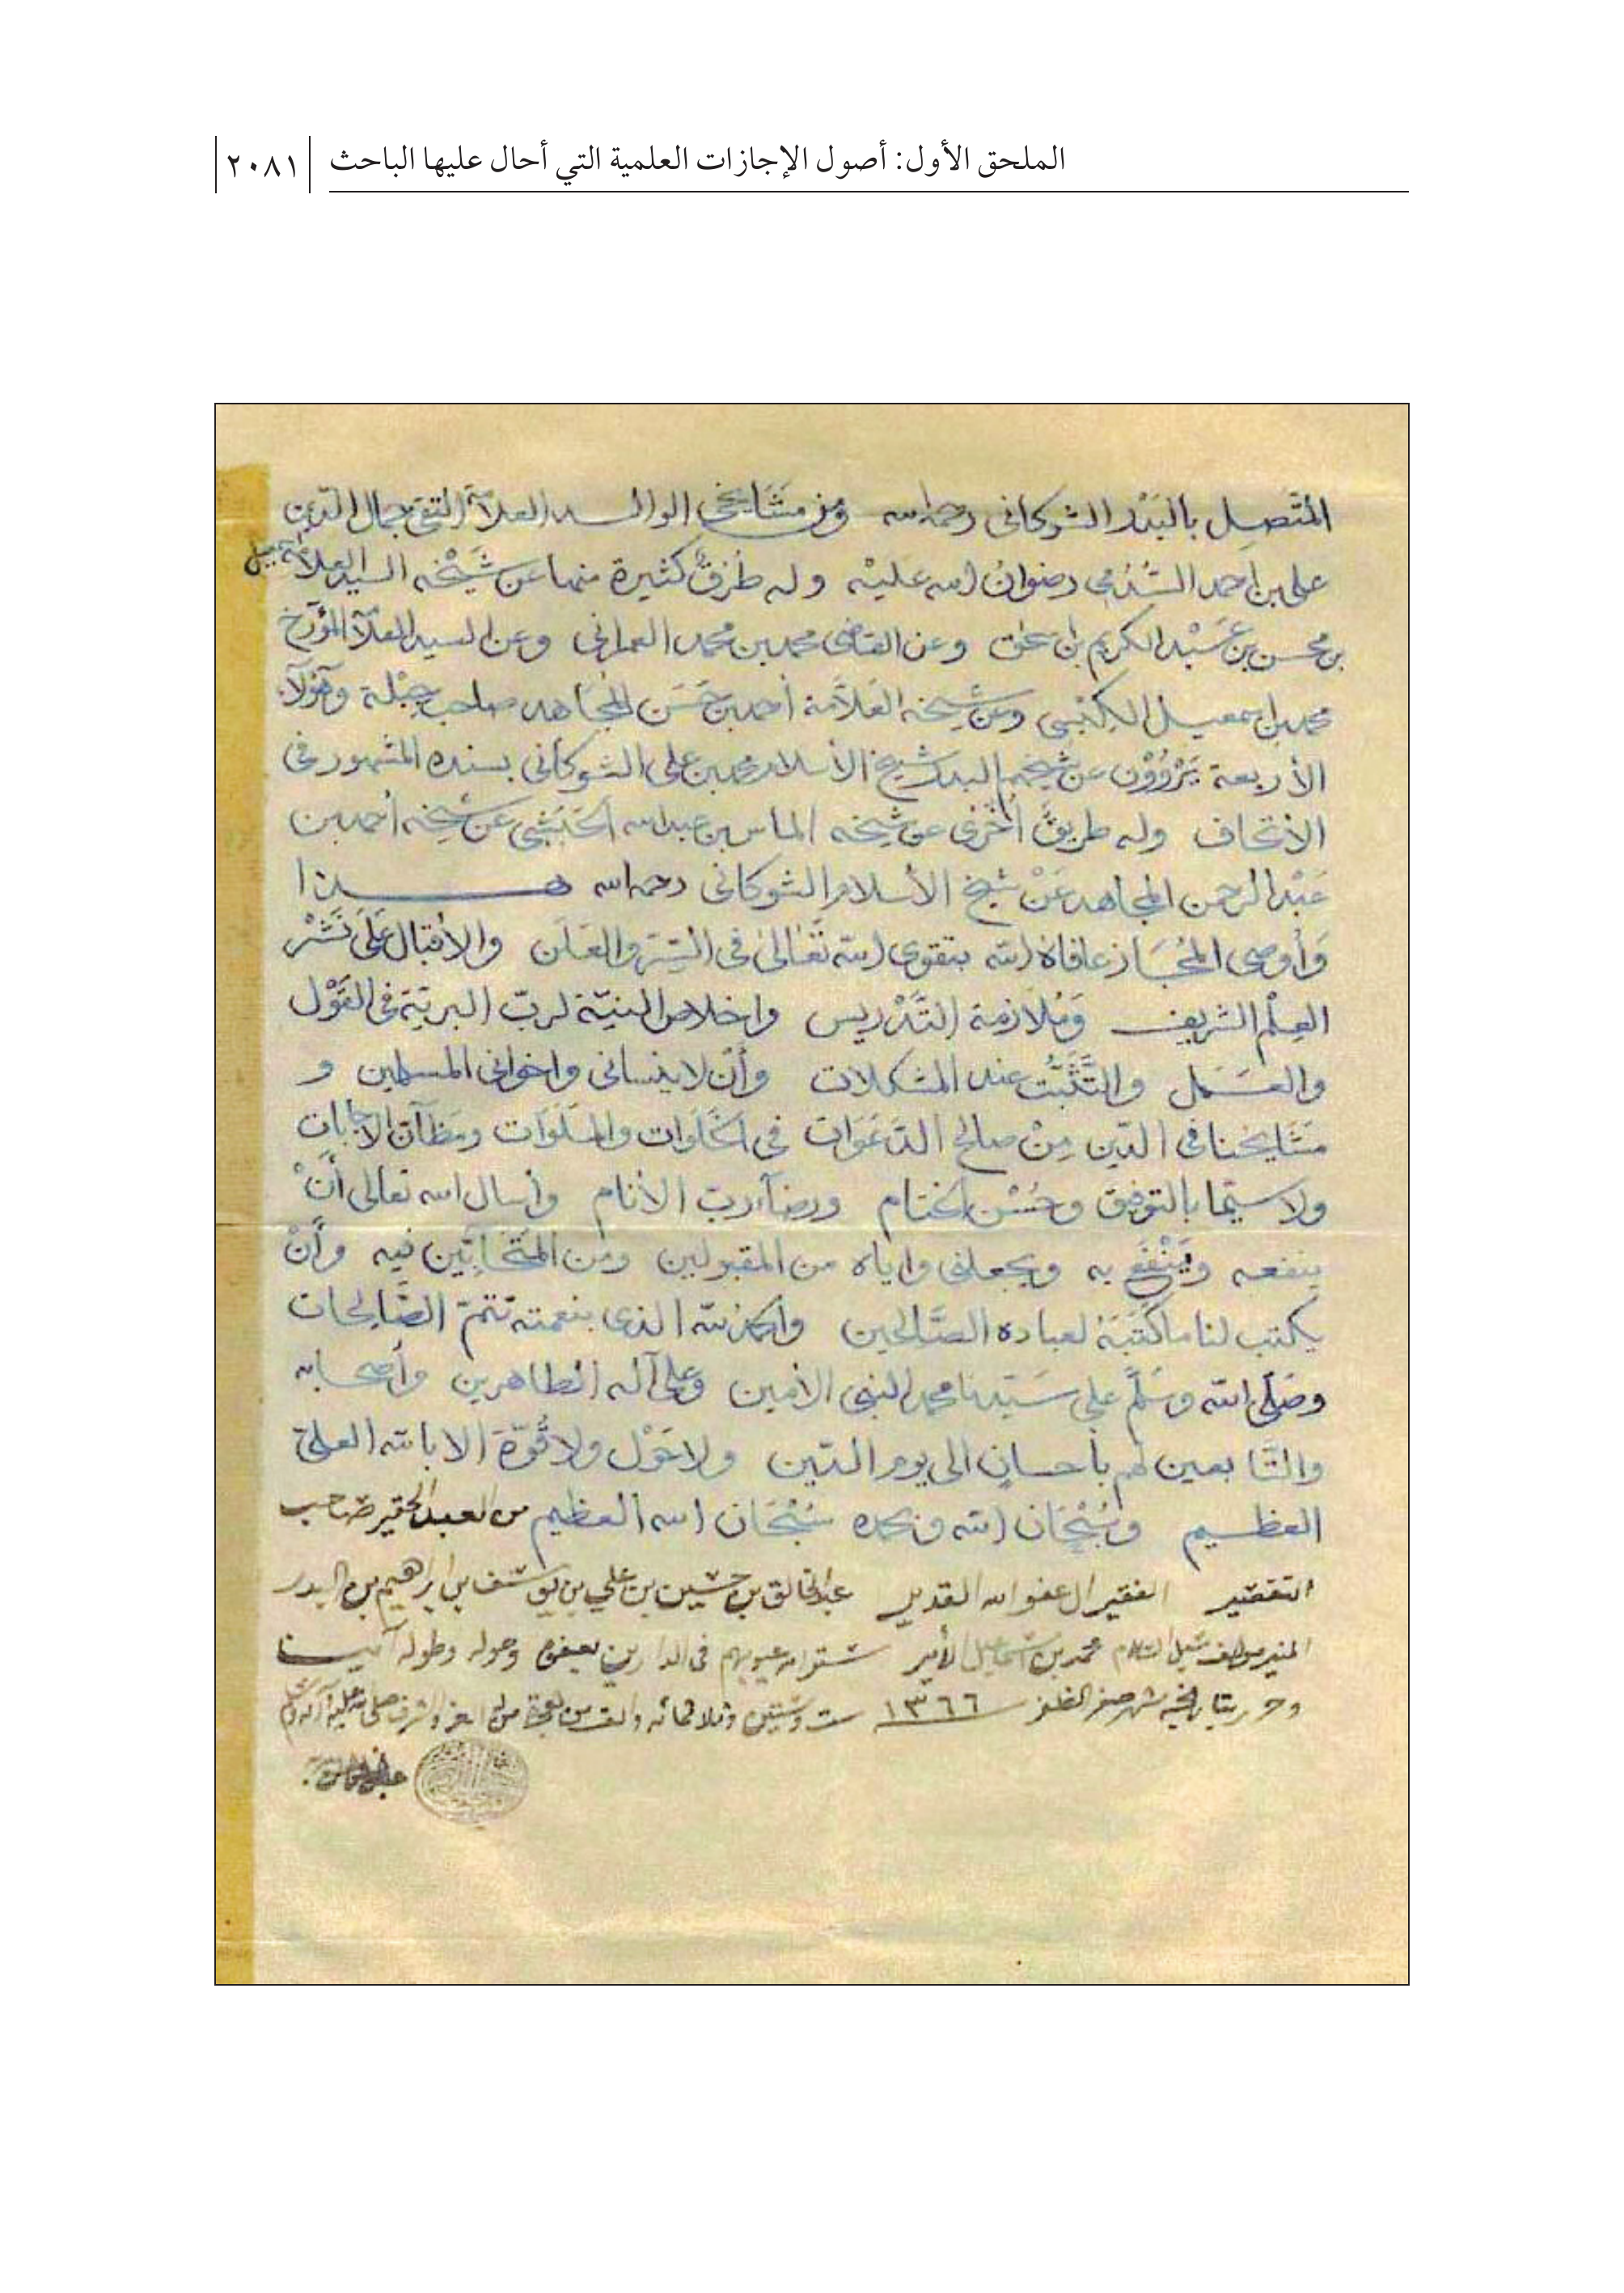 الملحق الأول: أصول الإجازات العلمية التي أحال عليها الباحث
٢٠٨١
المتَّصِل بالبَدْر الشوكانى رحمه الله ومن مَشَايخى الوالد العلامة التقي جمال الدين
على بن احمد السُّدُمى رضوانُ الله عليْه وله طُرُقٌ كثيرة منها عن شَيْخه السيد العلامة اسمعيل
بن محسن بن عَبْد الكريم بن اسحق وعن القاضى محمد بن محمد العمرانى وعن السيد العلامة المؤرخ
محمد بن اسمعيل الكِبْسِى وعن شيخه العَلاَّمة أحمد بن حَسَن المجَاهد صاحب جِبْلة وهؤلآء
الأربعة يَرْوُوْن عن شيخهم البدر شيخ الأسلام محمد بن على الشوكانى بسنده المشهور فى
الاتحاف وله طريقٌ أُخْرى عن شيخه الماس بن عبد الله الحَبَشى عن شيخه أحمد بن
عَبْد الرحمن المجاهد عَنْ شيخ الأسلام الشوكانى رحمه الله هـــذا
وَأُوصى المُجَــاز عافاهُ الله بتقوى الله تَعَالىٰ فى السِّرّ والعَلَن والأقبال عَلَى نَشْر
العِلْم الشريف وَمُلازمة التَّدْريس واخلاص النيّة لربّ البريّة فى القَوْل
والعَمَل والتَّثَبُّت عند المشكلات وأنْ لا ينسانى واخوانى المسلمين و
مَشَايخنا فى الدّين مِنْ صالح الدَّعَوَات فى الخَلَوات والجَلَوَات ومَظَآن الاجابات
ولا سيّما بالتوفيق وحُسْن الختام ورضآء ربّ الأنام وأسال الله تعالى أنْ
ينفعه ويَنْفَعَ به ويجعلنى واياه من المقبولين ومن المتحَابّين فيه وأنْ
يكتب لنا ما كَتَبَهُ لعباده الصَّالحين والحمْدُ لله الذى بنعمته تتمّ الصَّالحات
وصَلّى الله وسَلَّم على سَيّدنا محمد النبى الأمين وعلى آله الطاهرين وأصحابه
والتَّابعين لهم بأحسانٍ الى يوم الدّين ولا حَوْل ولا قُوّة الا بالله العلىّ
العظــيم وسُبْحَان الله وبحمده سُبْحَان الله العظيم من العبد الحقير صاحب
التقصير الفقير الى عفو الله القدير عبد الخالق بن حسين بن علي بن يوسف بن ابراهيم بن البدر
المنير مولف سبل السلام محمد بن اسماعيل الأمير ستر الله عيوبهم فى الدارين بعفوه وحوله وطوله آمين
وحرر بتاريخه شهر صفر الظفر ١٣٦٦ ست وستين وثلاثمائه والف من هجرة من له العز والشرف صلى الله عليه وآله وسلم